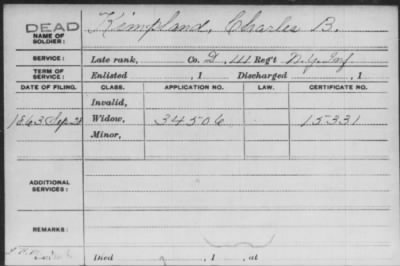 DEAD
NAME OF SOLDIER: Kimpland, Charles B.
SERVICE: Late rank, Co. D, 111 Reg't N.Y. Inf.
TERM OF SERVICE: Enlisted , 1 Discharged , 1
DATE OF FILING. CLASS. APPLICATION NO. LAW. CERTIFICATE NO.
Invalid,
1863 Sep. 28 Widow, 34506 15331
Minor,
ADDITIONAL SERVICES:
REMARKS:
Died , 1 , at